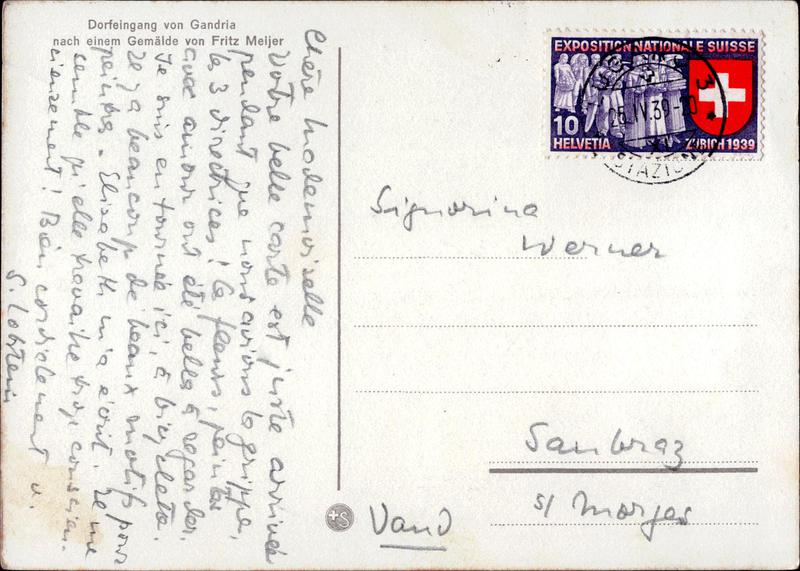 Dorfeingang von Gandria
nach einem Gemälde von Fritz Meijer
Chère Mademoiselle
Votre belle carte est juste arrivée
pendant que nous avions la grippe,
les 3 directrices! les fleurs, peintes
avec amour ont été belles à regarder.
Je suis en tournée ici, à bicyclette.
Il y a beaucoup de beaux motifs pour
peintre. Elisabeth m'a écrit. Il me
semble qu'elle travaille trop conscien-
cieusement! Bien cordialement v.
S. Lobstein
EXPOSITION NATIONALE SUISSE
10
HELVETIA
ZURICH 1939
26.IV.39-10
STAZIO
Signorina
Werner
Saubraz
s/ Morges
Vaud